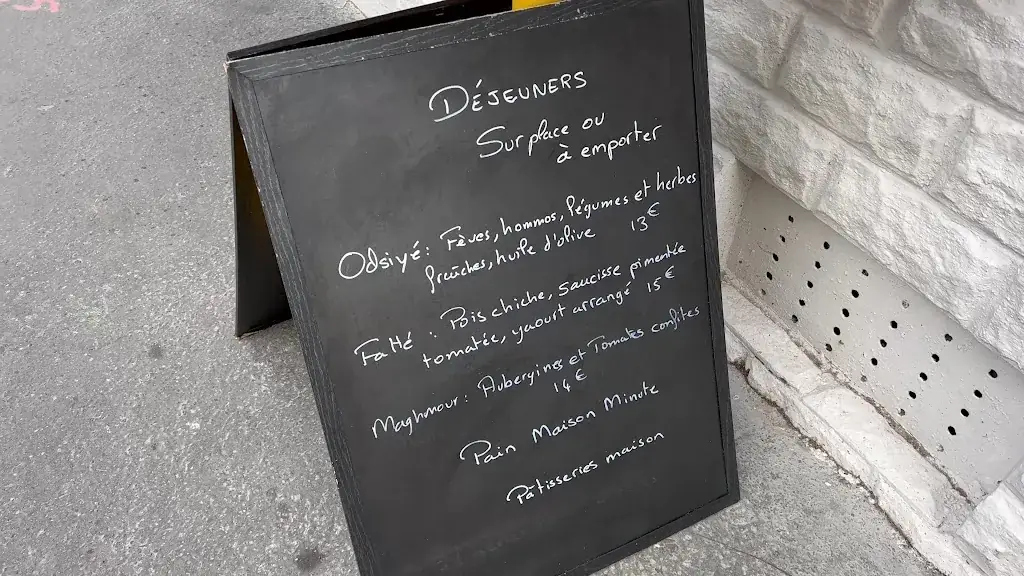 DÉJEUNERS
Sur place ou
à emporter
Odsiyé : Fèves, hommos, légumes et herbes
fraîches, huile d'olive 13€
Fatté : Pois chiche, saucisse pimentée
tomatée, yaourt arrangé 15€
Maghmour : Aubergines et Tomates confites
14€
Pain Maison Minute
Pâtisseries maison